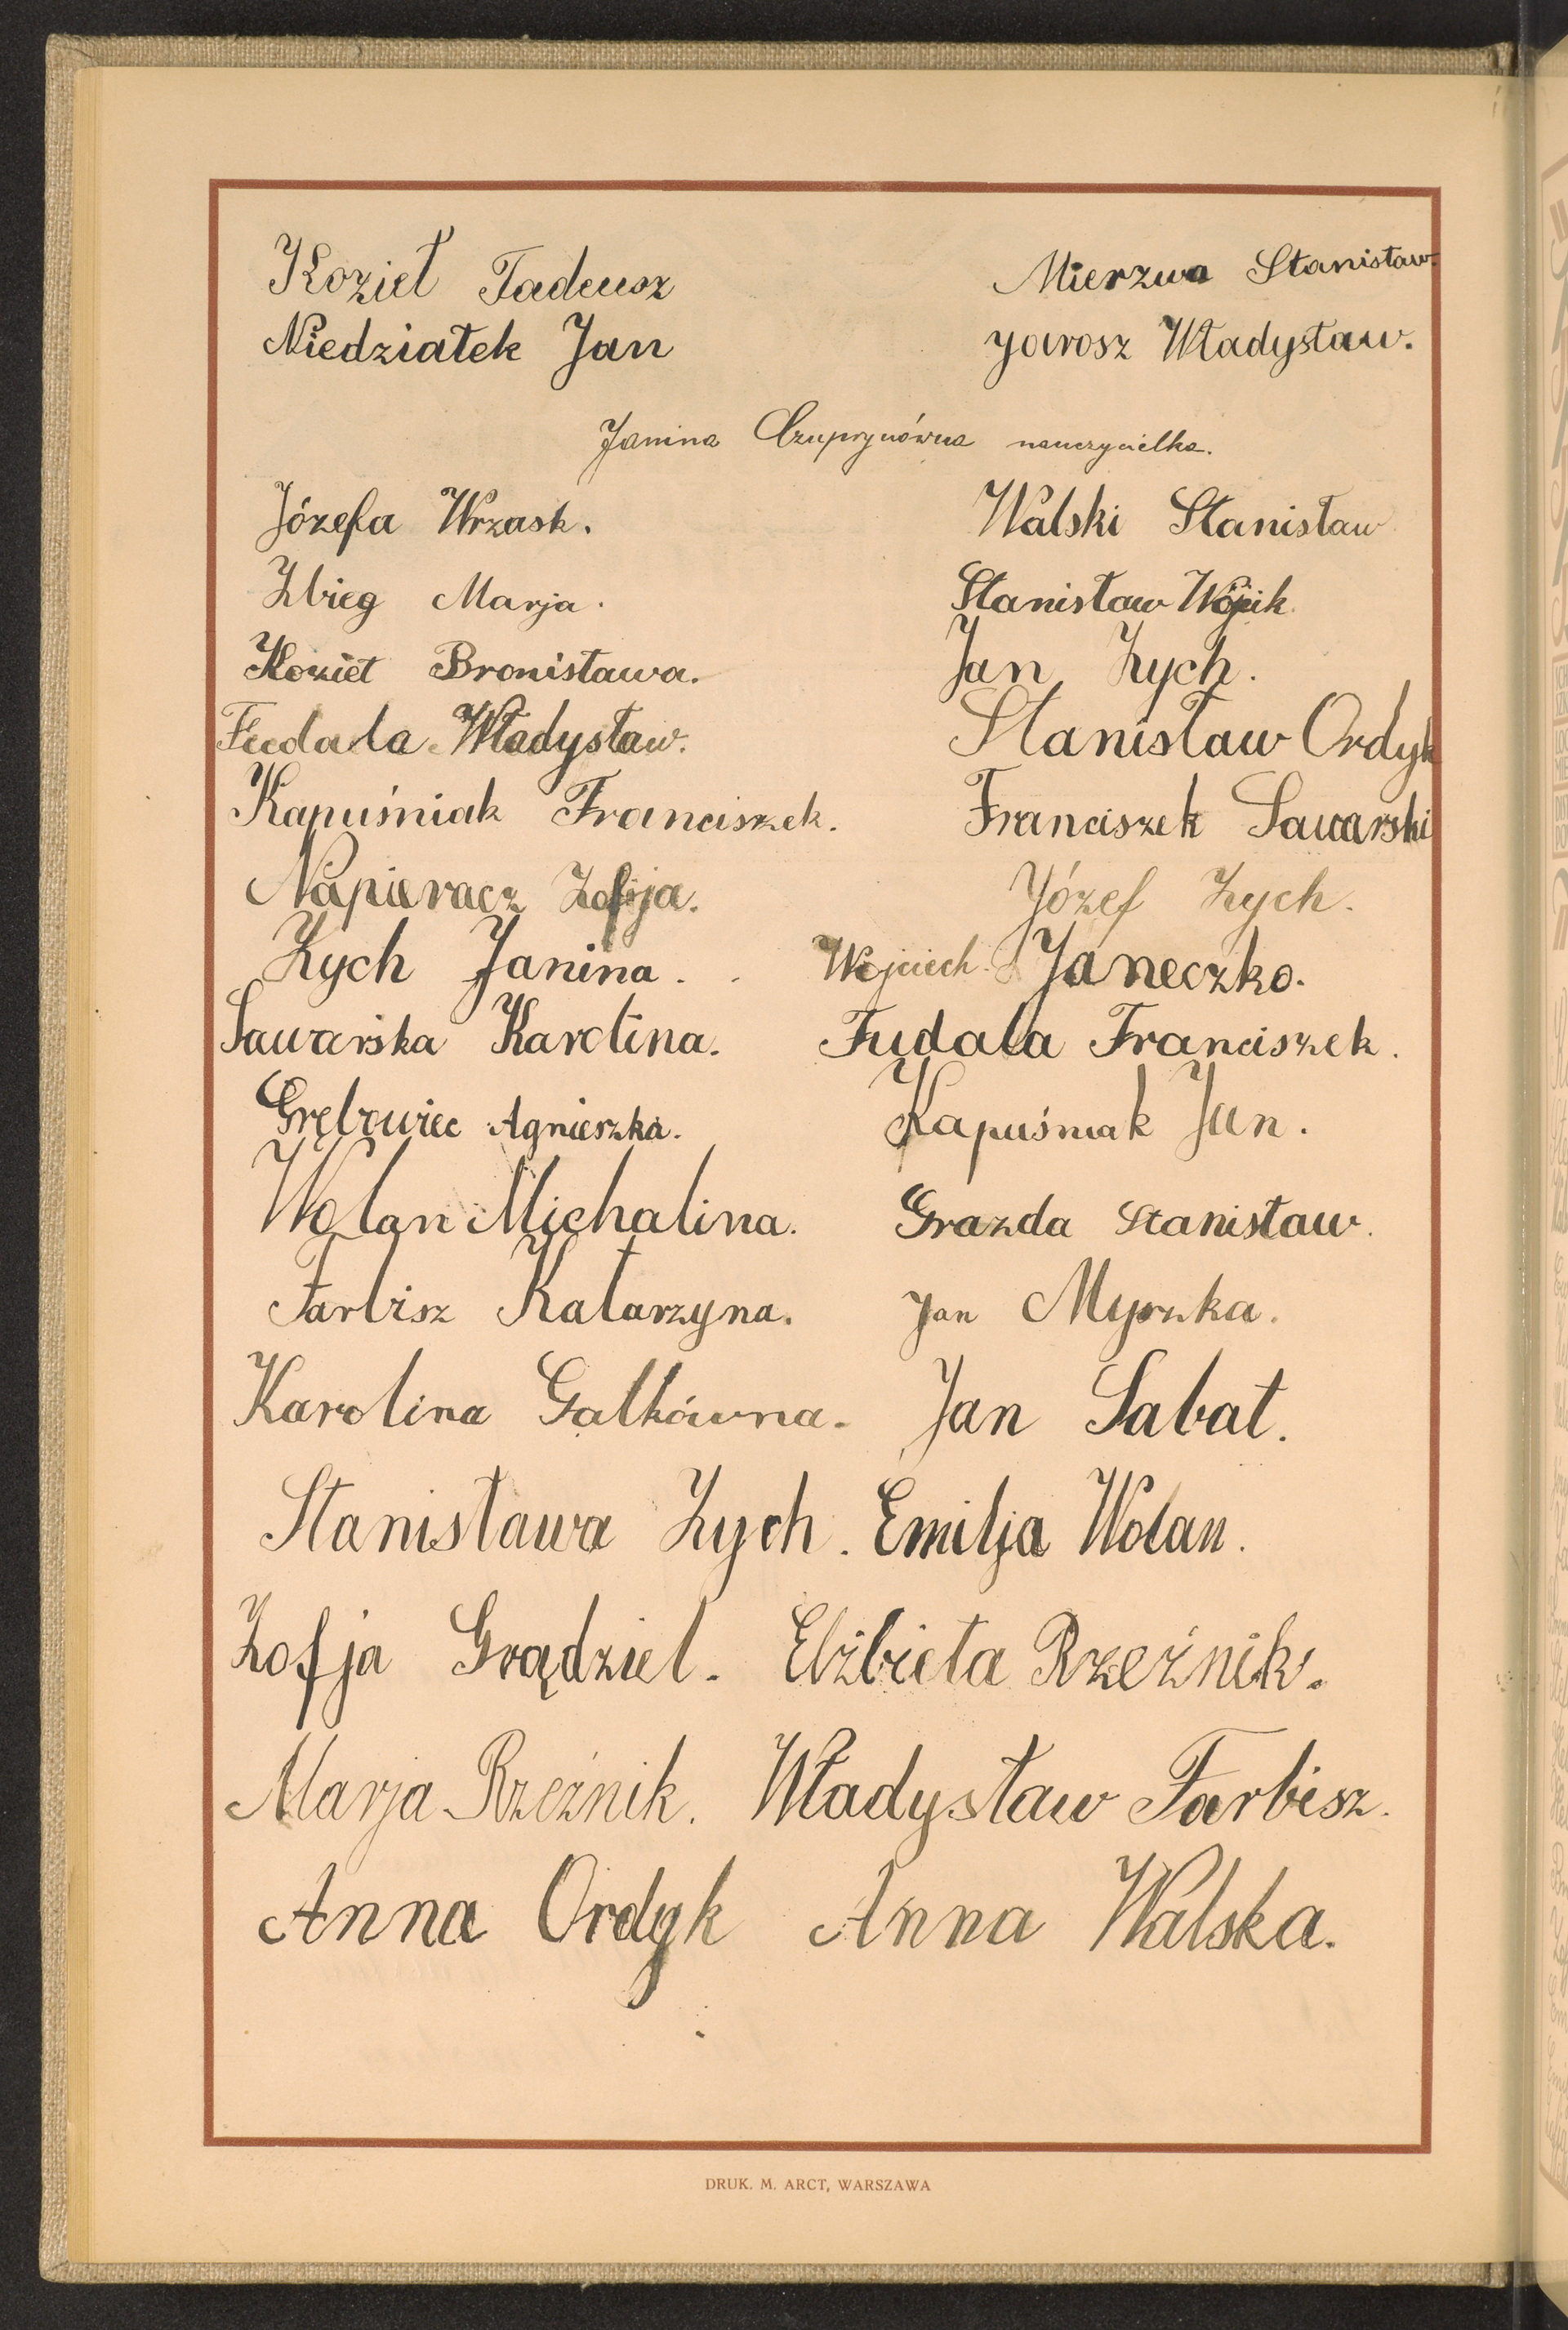 Kozieł Tadeusz Mierzwa Stanisław.
Niedziałek Jan Jarosz Władysław.
Janina Czuprynówna nauczycielka.
Józefa Wrzask. Walski Stanisław
Zbieg Marja. Stanisław Wójcik.
Kozieł Bronisława. Jan Zych.
Fudala Władysław. Stanisław Ordyk
Kapuśniak Franciszek. Franciszek Sawarski
Napieracz Zofija. Józef Zych.
Zych Janina. Wojciech Janeczko.
Sawarska Karolina. Fudala Franciszek.
Grębowiec Agnieszka. Kapuśniak Jan.
Wolan Michalina. Grazda Stanisław.
Farbisz Katarzyna. Jan Myszka.
Karolina Gałkówna. Jan Sabat.
Stanisława Zych. Emilja Wolan.
Zofja Grądziel. Elżbieta Rzeźnik.
Marja Rzeźnik. Władysław Farbisz.
Anna Ordyk Anna Walska.
DRUK. M. ARCT, WARSZAWA